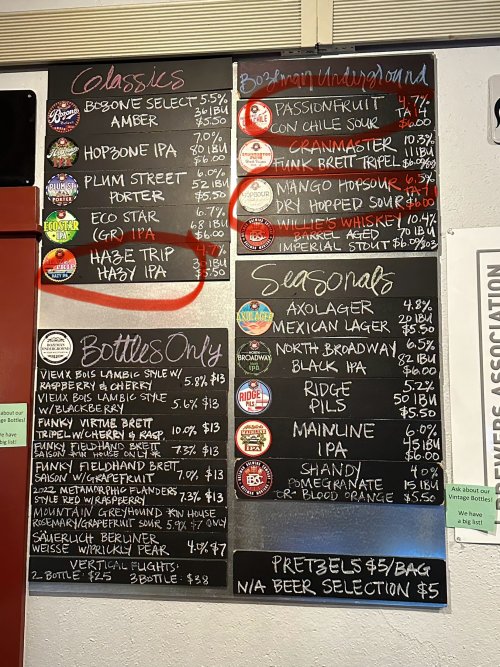 Classics
BOZONE SELECT 5.5%
AMBER 36 IBU
$5.50
HOPZONE IPA 7.0%
80 IBU
$6.00
PLUM STREET 6.0%
PORTER 52 IBU
$5.50
ECO STAR 6.7%
(GR) IPA 68 IBU
$6.00
HAZE TRIP 4.7%
HAZY IPA
$5.50
Bottles Only
VIEUX BOIS LAMBIC STYLE W/
RASPBERRY & CHERRY 5.8% $13
VIEUX BOIS LAMBIC STYLE
W/BLACKBERRY 5.6% $13
FUNKY VIRTUE BRETT
TRIPEL W/CHERRY & RASP. 10.0% $13
FUNKY FIELDHAND BRETT
SAISON 7.3% $13
FUNKY FIELDHAND BRETT
SAISON W/GRAPEFRUIT 7.0% $13
2022 METAMORPHIC FLANDERS
STYLE RED W/RASPBERRY 7.3% $13
MOUNTAIN GREYHOUND KTN HOUSE
ROSEMARY/GRAPEFRUIT SOUR 5.9% $7 ONLY
SÄUERLICH BERLINER
WEISSE W/PRICKLY PEAR 4.0% $7
VERTICAL FLIGHTS:
2 BOTTLE: $25 3 BOTTLE: $38
Bozeman Underground
PASSIONFRUIT 4.7%
CON CHILE SOUR TA 14
$6.00
CRANMASTER 10.3%
FUNK BRETT TRIPEL 11 IBU
MANGO HOPSOUR 6.3%
DRY HOPPED SOUR
$6.00
WILLIE'S WHISKEY 10.4%
BARREL AGED 70 IBU
IMPERIAL STOUT
Seasonals
AXOLAGER 4.8%
MEXICAN LAGER 20 IBU
$5.50
NORTH BROADWAY 6.5%
BLACK IPA 82 IBU
$6.00
RIDGE 5.2%
PILS 50 IBU
$5.50
MAINLINE 6.0%
IPA 45 IBU
$6.00
SHANDY 4.0%
POMEGRANATE 15 IBU
OR BLOOD ORANGE $5.50
PRETZELS $5/BAG
N/A BEER SELECTION $5
Ask about our
Vintage Bottles!
We have
a big list!
BREWER ASSOCIATION